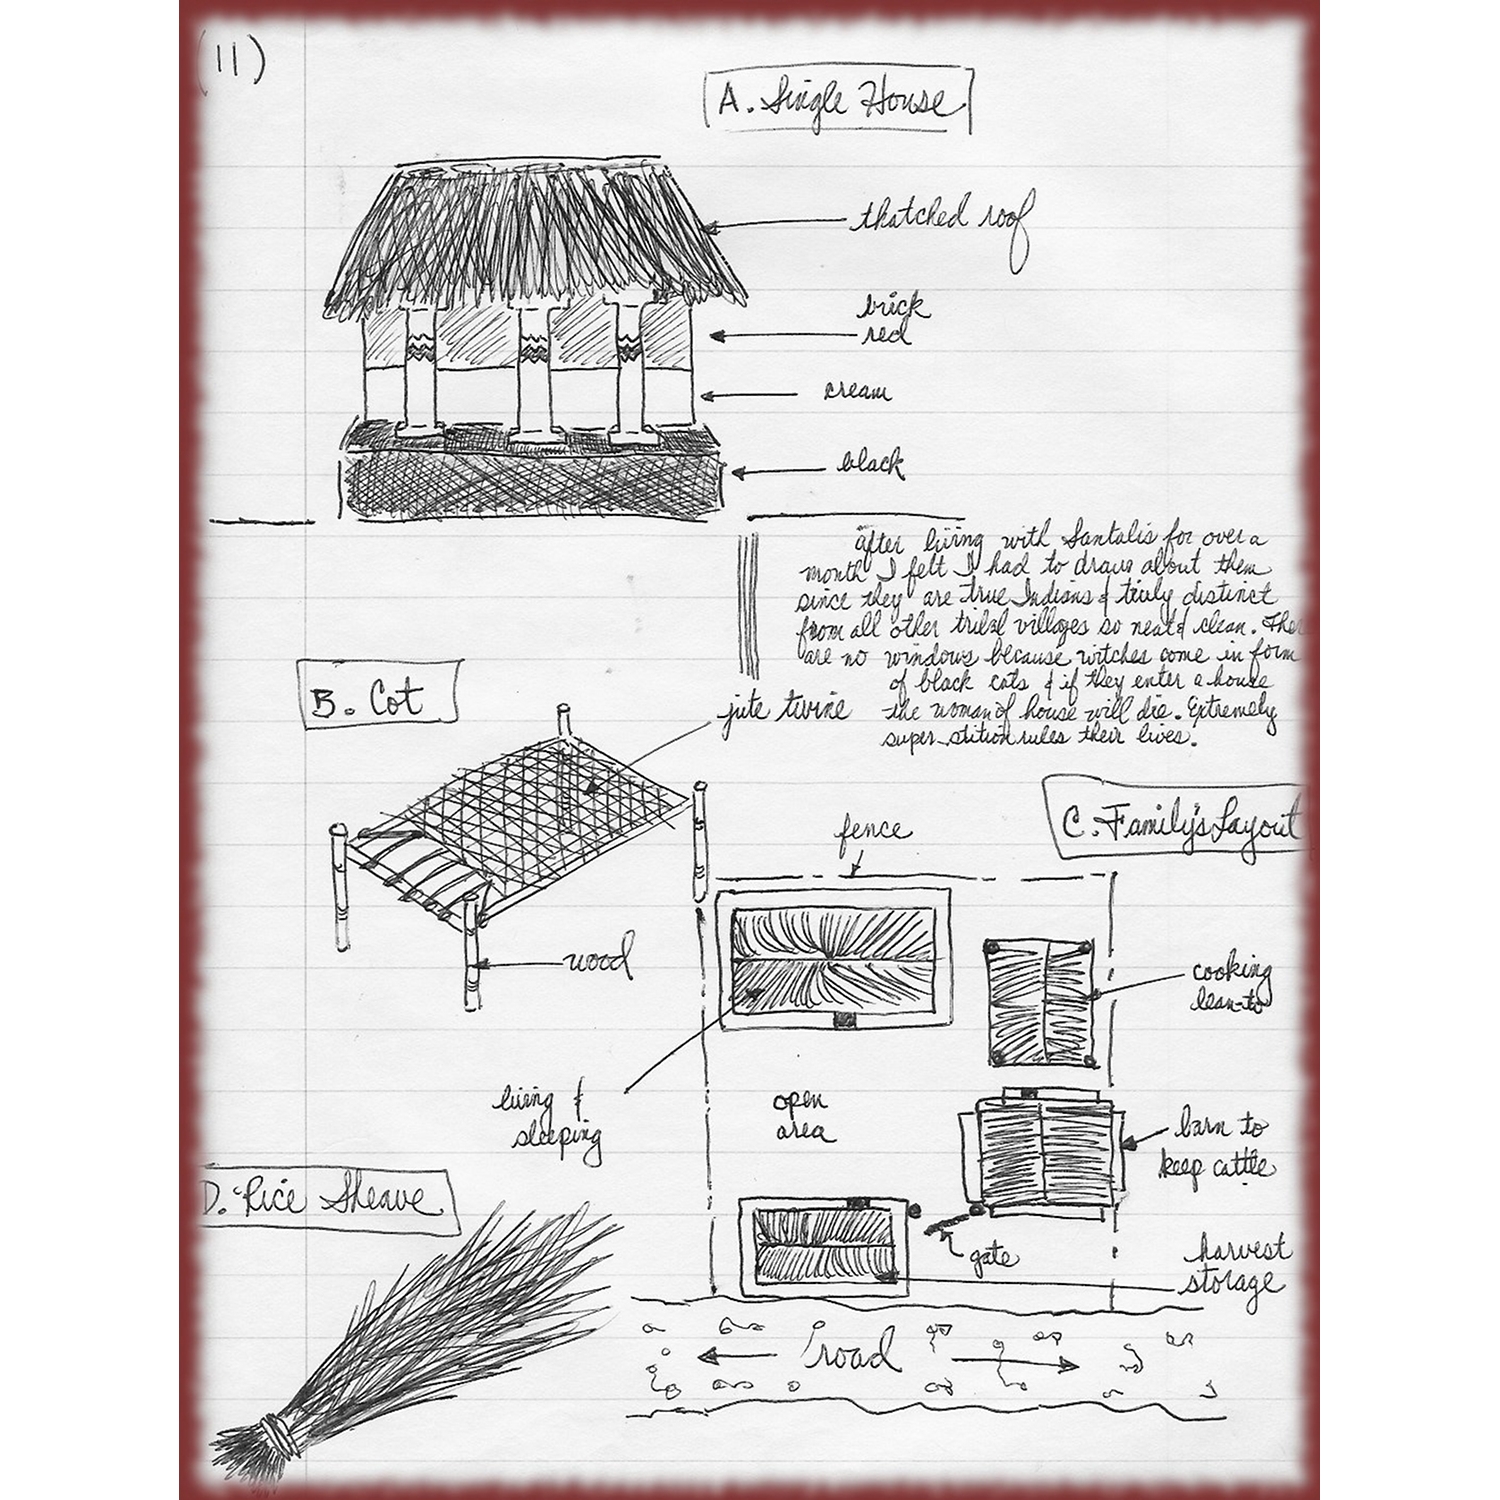 (11)
A. Single House
thatched roof
brick
red
cream
black
after living with Santalis for over a
month I felt I had to draw about them
since they are true Indians & truly distinct
from all other tribal villages so neat & clean. There
are no windows because witches come in form
of black cats & if they enter a house
the woman of house will die. Extremely
super-stition rules their lives.
B. Cot
jute twine
wood
C. Family's Layout
fence
cooking
lean-to
living &
sleeping
open
area
barn to
keep cattle
gate
harvest
storage
road
D. Rice Sheave